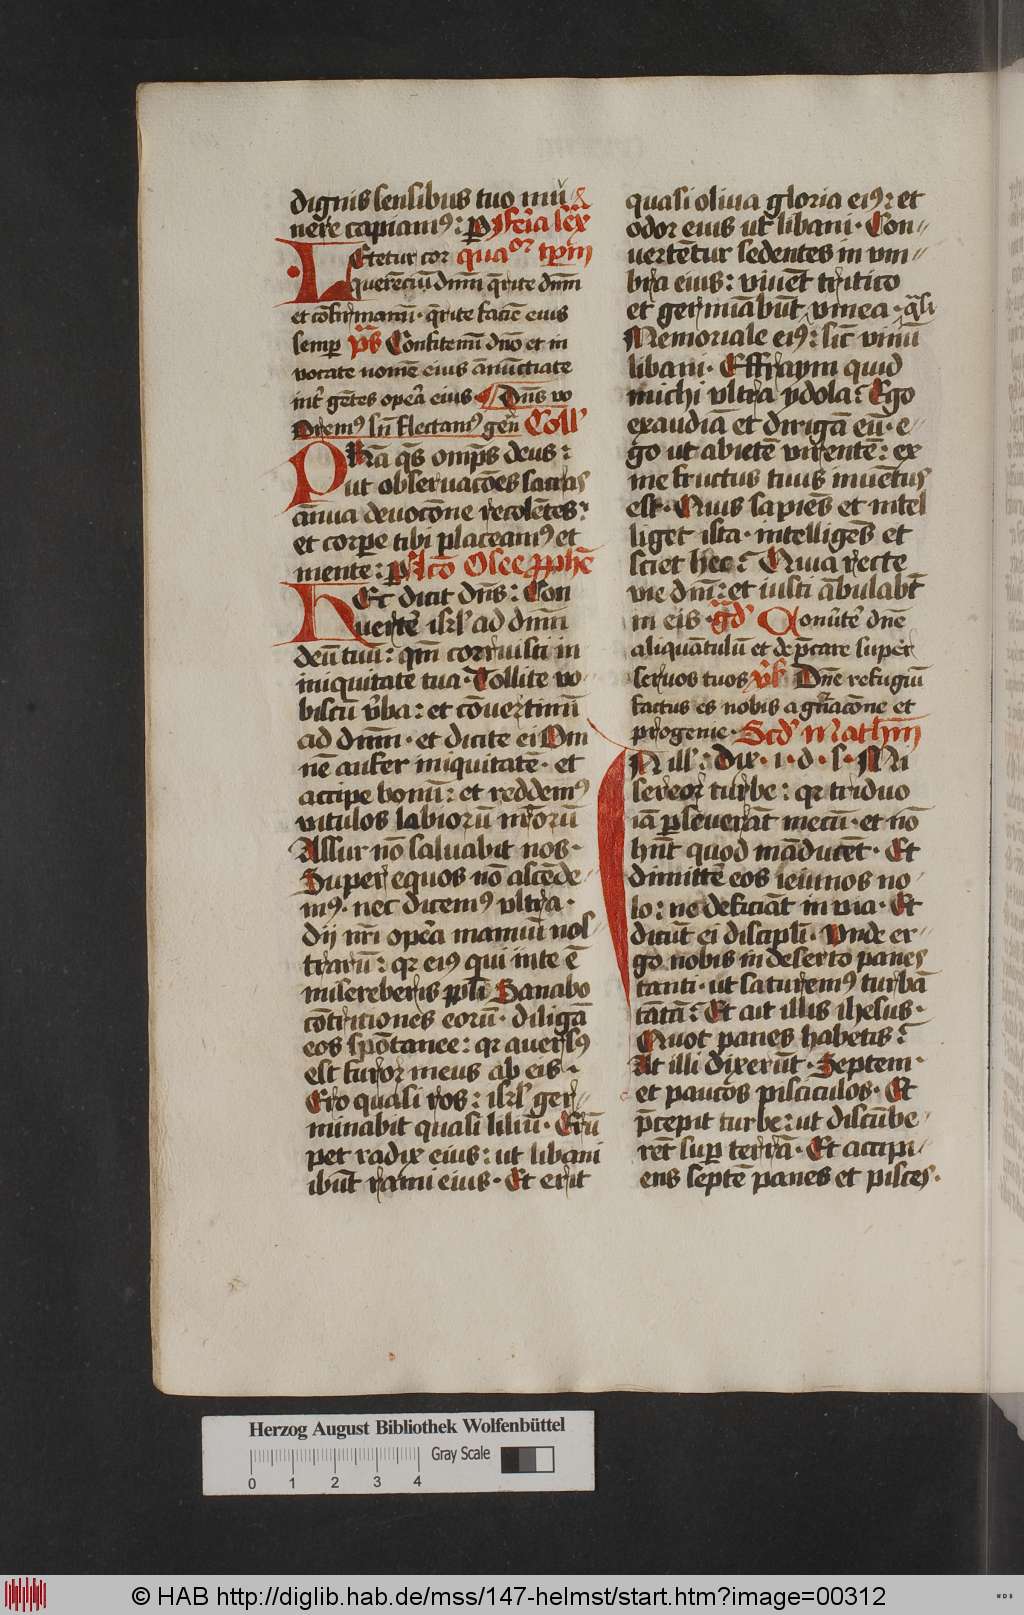 dignis sensibus tuo mu
nere capiam9: p feria sex
Letetur cor quaor tpm
querēciū dnm q̄rite dnm
et cōfirmamī · q̄rite faciē eius
semp ps Confitemī dnō et in
vocate nomē eius ānūctiate
int̉ gētes opera eius · Dns vo
Orem9 sn̄ flectam9 gen̄ Coll
PRa q̄s omps deus:
ut observacōes sacras
ānua devocōne recolētes:
et corpe tibi placeam9 et
mente: p Lcō Osee pphē
HEc dicit dns: Con
uertē isrl ad dnm
deū tuū: qm̄ corruisti in
iniquitate tua · Tollite vo
biscū v̉ba: et cōuertimī
ad dnm · et dicite ei Om
nē aufer iniquitatē · et
accipe bonū: et reddem9
vitulos labiorū nrorū
Assur nō saluabit nos ·
Super equos nō ascēde
m9 · nec dicem9 vltra ·
dij nri opera manuū nos
trarū: qr ei9 qui inte ē
misereberis pplī Sanabo
cōtritiones eorū · diligā
eos spōtanee: qr auers9
est furor meus ab eis ·
Ero quasi ros: isrl ger
minabit quasi liliū · Erū
pet radix eius: ut libani
ibūt rami eius · Et erit
quasi oliua gloria ei9: et
odor eius ut libani · Con
uertētur sedentes in vm
bra eius: viuēt tritico
et germiabūt vinea · q̄si
Memoriale ei9: sic̄ vinū
libani · Effraym quid
michi vltra ydola? Ego
exaudiā et dirigā eū · e
go ut abietē virentē: ex
me fructus tuus inuētus
est · Quis sapiēs et intel
liget ista · intelligēs et
sciet hec? Quia recte
vie dni: et iusti ābulabt
in eis · gd Conūtē dnē
aliquātulū et dep̄care super
seruos tuos vs Dnē refugiū
factus es nobis a gnacōne et
progenie · Scd Mathm
IN ill: Dix · i · d · s · Mi
sereor turbe: qr triduo
iā pseuerāt mecū · et nō
hnt quod māducēt · Et
dimittē eos ieiunos no
lo: ne deficiāt in via · Et
dicūt ei discipli · Vnde er
go nobis in deserto panes
tanti · ut saturem9 turbā
tātā? Et ait illis ihesus ·
Quot panes habetis?
At illi dixerūt · Septem ·
et paucos pisciculos · Et
p̄cepit turbe: ut discūbe
rēt sup terrā · Et accipi
ens septē panes et pisces ·
Herzog August Bibliothek Wolfenbüttel
Gray Scale
0 1 2 3 4
© HAB http://diglib.hab.de/mss/147-helmst/start.htm?image=00312